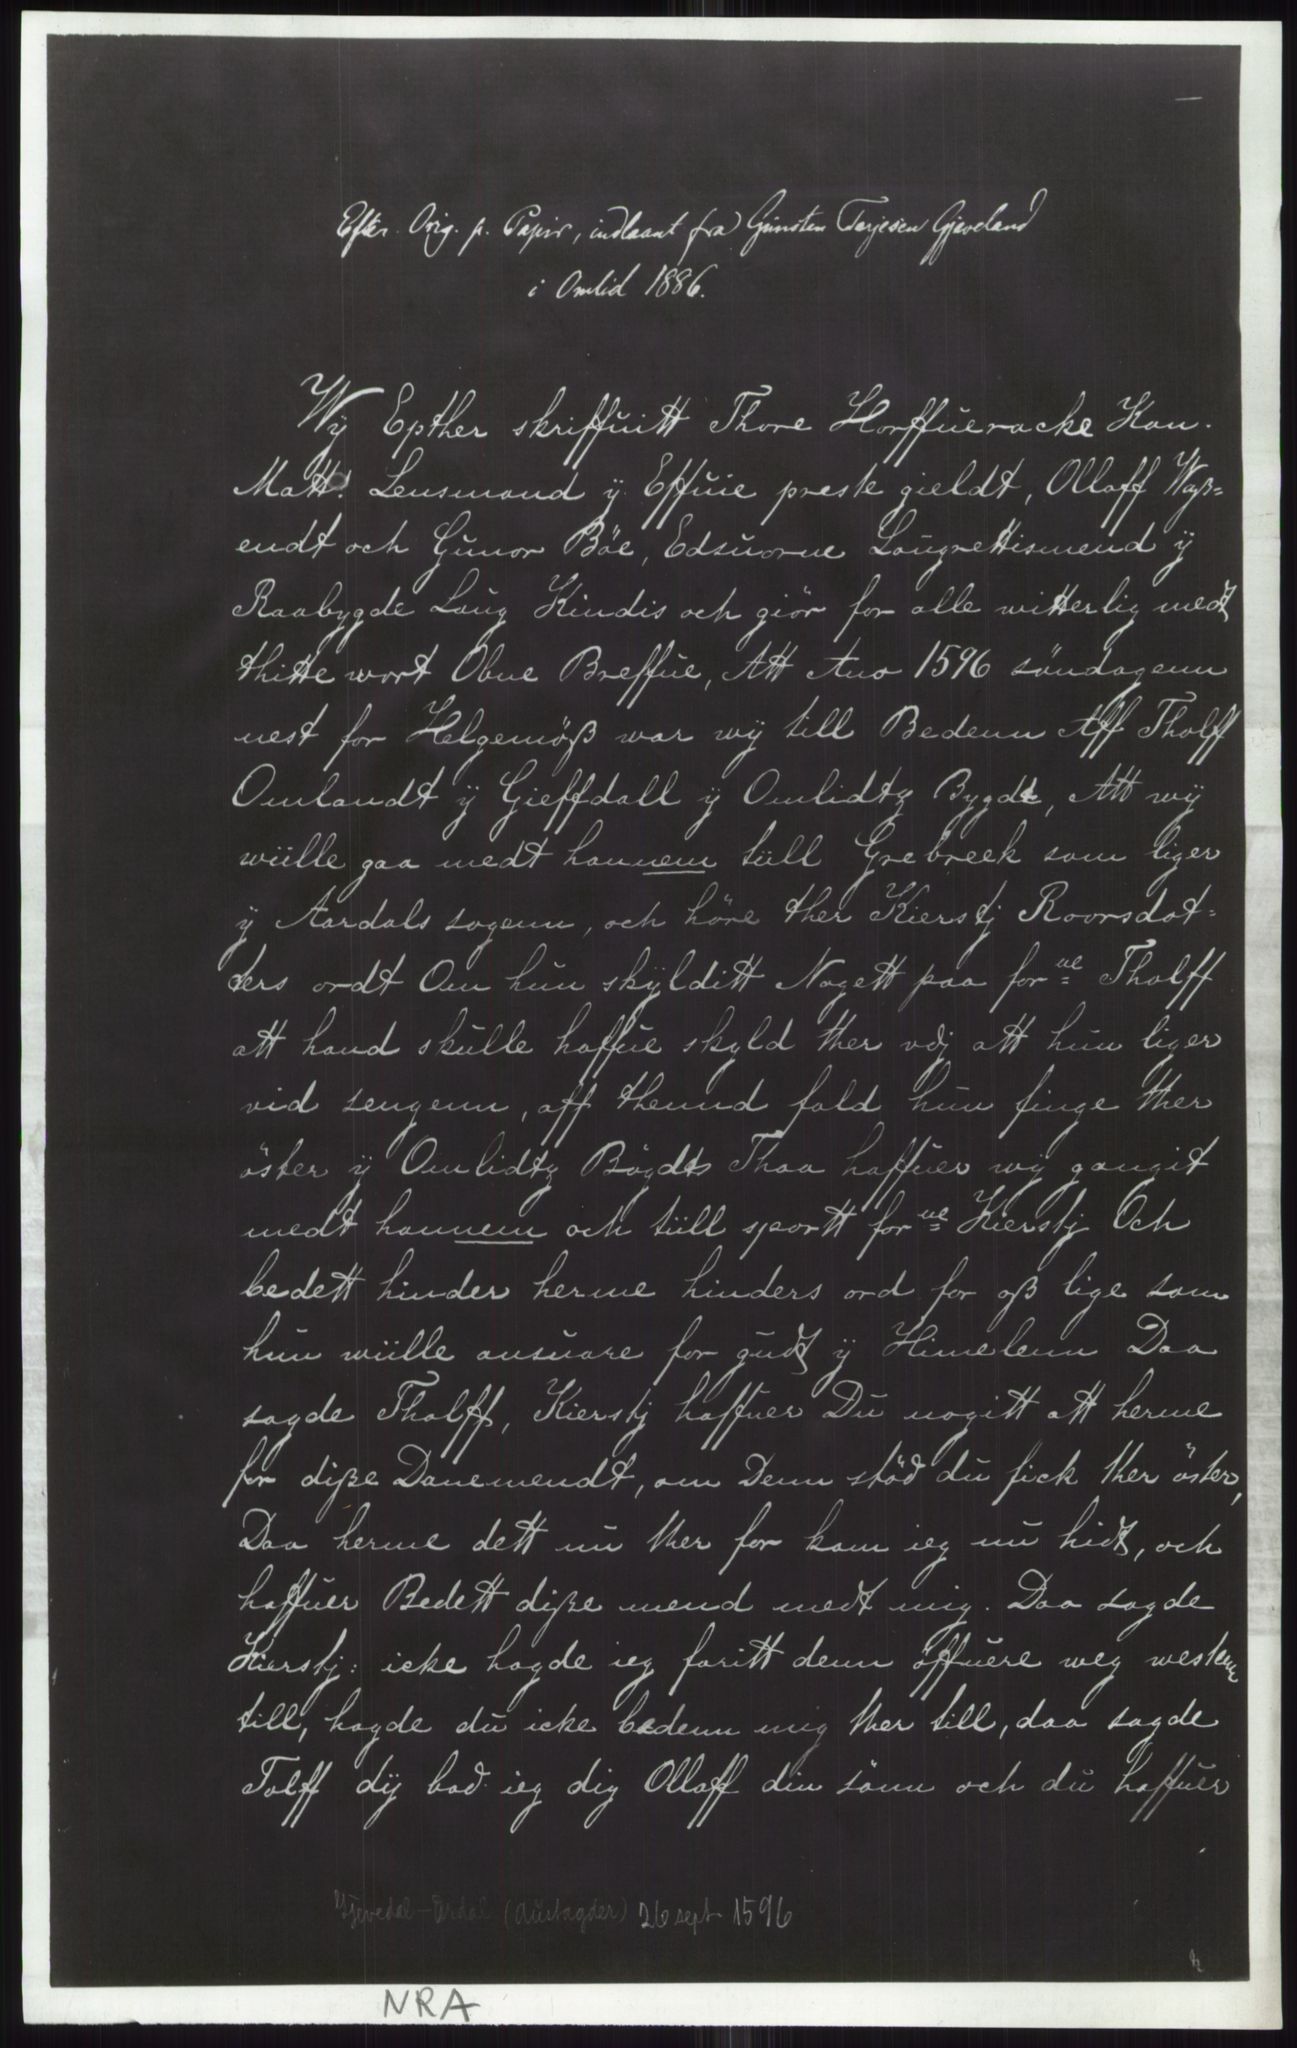 Efter Orig. p. Papir, indlaant fra Gunsten Terjesen Gjeveland
i Omlid 1886.
Wÿ Epther skriffuitt Thore Horffueracke Kon.
Matt: Lensmand ÿ Effuie preste gieldt, Ollaff Waß=
endt och Gunor Böe, Edsuorne Laugrettismend ÿ
Raabygde Laug Kindis och giör for alle witterlig medt
thitte wort Obne Breffue, Att Ano 1596 söndagenn
nest for Helgemöß war wÿ till Bedenn Aff Tholff
Omlandt ÿ Gieffdall ÿ Omlidtz Bygdt, Att wÿ
wülle gaa medt hannem tüll Grebreek som liger
ÿ Aardals sogenn, och höre ther Kierstj Roorsdat=
ters ordt Om hun skÿlditt Nogett paa forne Tholff
att hand skulle haffue skyld ther vdj att hun liger
vid sengenn, aff thennd fald hun finge ther
öster ÿ Omlidtz Bögdt Thaa haffuer wÿ gangit
medt hannem och tüll sportt forne Kierstj Och
bedett hinder herme hinders ord for oß lige som
hun wülle ansuare for gudt ÿ Himelenn Daa
sagde Tholff, Kierstj haffuer Du nogitt att herme
for diße Danemendt, om Denn stöd du fick ther öster,
Daa herme dett nu ther for kom ieg nu hidt, och
haffuer Bedett diße mend medt mig. Daa sagde
Kierstj: icke hagde ieg faritt denn öffuere weg westenn
till, hagde du icke bedenn mig ther till, daa sagde
Tolff dÿ bad ieg dig Ollaff din sönn och du haffuer
Gjevedal - Årdal (Austagder) 26 sept 1596
NRA